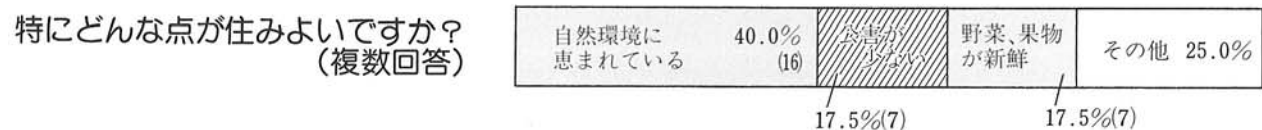 特にどんな点が住みよいですか？
（複数回答）
自然環境に 40.0%
恵まれている (16)
公害が
少ない
野菜、果物
が新鮮
その他 25.0%
17.5%(7)
17.5%(7)